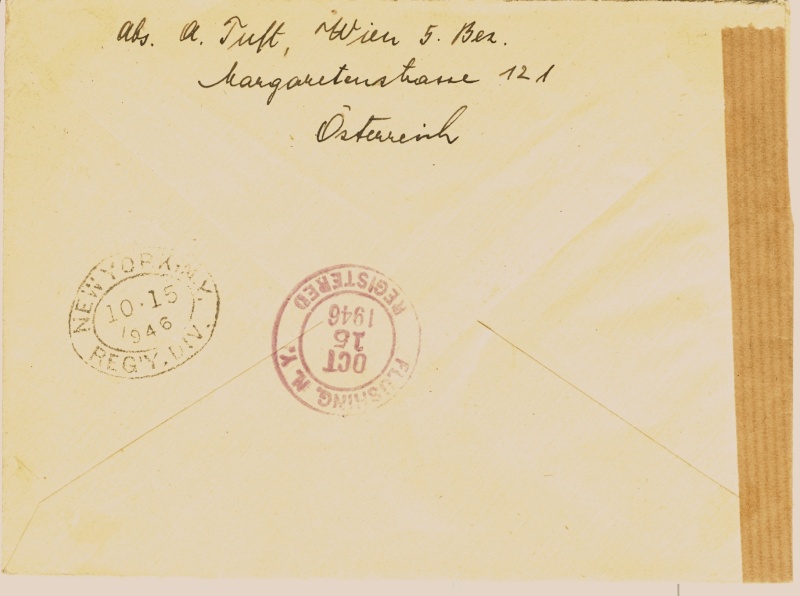 Abs. A. Tuft, Wien 5. Bez.
Margaretenstrasse 121
Österreich
NEW YORK, N.Y.
10-15
1946
REG'Y. DIV.
FLUSHING, N.Y.
OCT
15
1946
REGISTERED